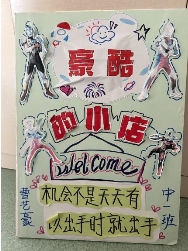 豪酷
的小店
welcome
机会不是天天有
以出手时就出手
曹艺豪
中班